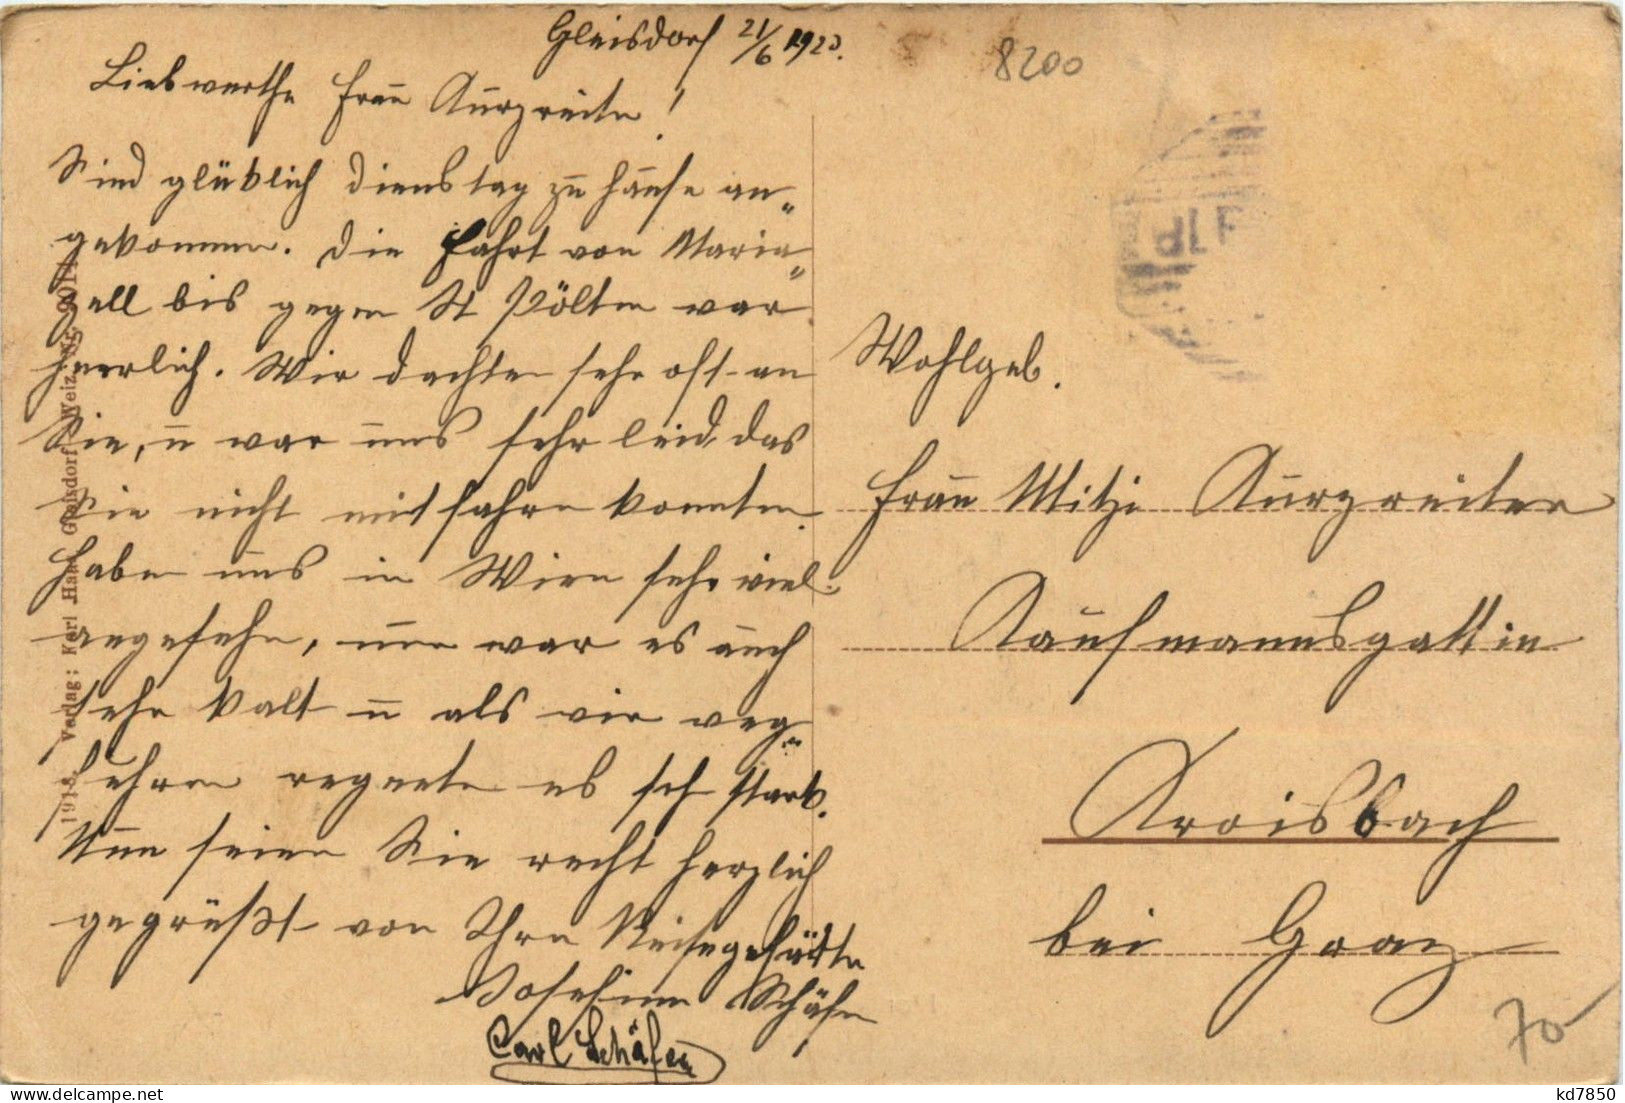 Gleisdorf 21/6 1923.
8200
Liebwerthe Frau Kurzreiter!
Sind glüklich dienstag zu hause an-
gekommen. Die Fahrt von Maria-
zell bis gegen St Pölten war
herrlich. Wir dachten sehr oft an
Sie, u war uns sehr leid das
Sie nicht mitfahren konnten.
Haben uns in Wien sehr viel
angesehn, nur war es auch
sehr kalt u als wir weg-
fuhren regnete es sch stark.
Nun seien Sie recht herzlich
gegrüßt von Ihren Reisegefährten
Josefine Schäfer
Carl Schäfer
1918. Verlag: Karl Hans, Gleisdorf Weiz
Wohlgeb.
Frau Mitzi Kurzreiter
Kaufmannsgattin
Kroisbach
bei Graz
70-
kd7850